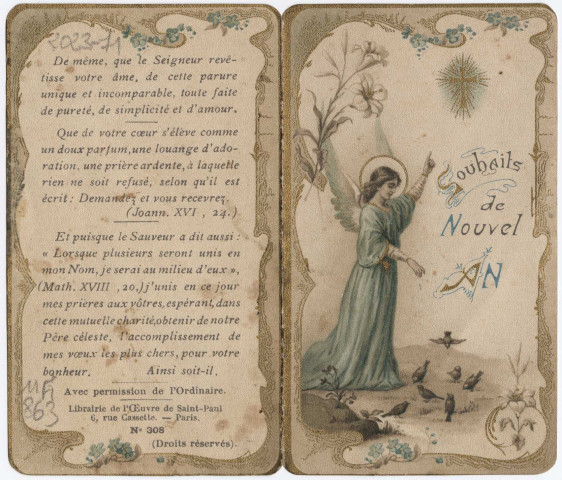 2023-71
De même, que le Seigneur revê-
tisse votre âme, de cette parure
unique et incomparable, toute faite
de pureté, de simplicité et d'amour.
Que de votre cœur s'élève comme
un doux parfum, une louange d'ado-
ration, une prière ardente, à laquelle
rien ne soit refusé, selon qu'il est
écrit : Demandez et vous recevrez.
(Joann. XVI, 24.)
Et puisque le Sauveur a dit aussi :
« Lorsque plusieurs seront unis en
mon Nom, je serai au milieu d'eux »,
(Math. XVIII, 20.) j'unis en ce jour
mes prières aux vôtres, espérant, dans
cette mutuelle charité, obtenir de notre
Père céleste, l'accomplissement de
mes vœux les plus chers, pour votre
bonheur. Ainsi soit-il.
Avec permission de l'Ordinaire.
Librairie de l'Œuvre de Saint-Paul
6, rue Cassette. — Paris.
No 308
(Droits réservés).
863
Souhaits
de
Nouvel
AN